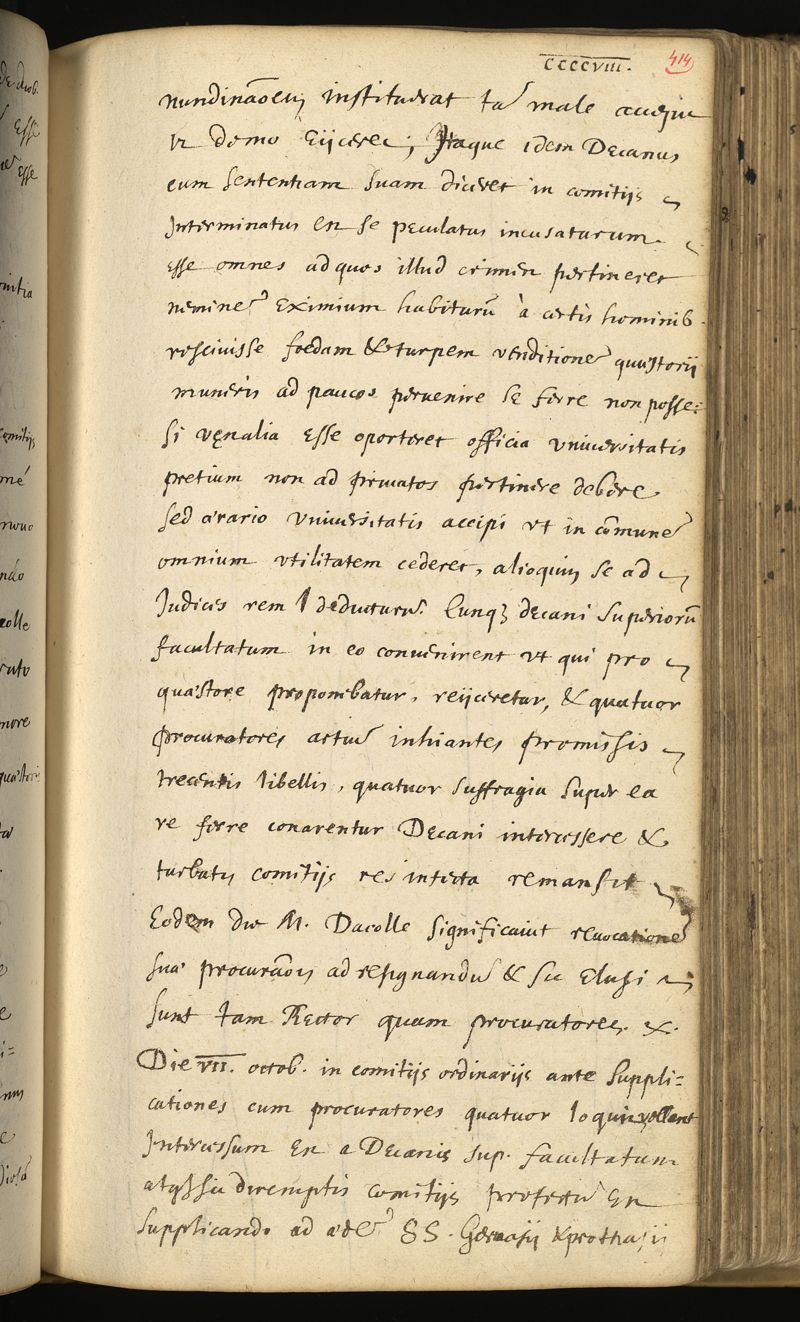 CCCCVIII.
414
nundinaõem instituerat ta͂ male
domo eijceret; Itaque idem Decanus
cum sententiam suam diceret in comitijs
Interminatus en se peculatus incusaturum
esse omnes ad quos illud crimen pertineret
nemine͂ eximium habiturũ à certis hominib.
resciuisse foedam & turpem venditione͂ quæstorij
muneris ad paucos peruenire se ferre non posse:
si vęnalia esse oporteret officia vniuersitatis
pretium non ad priuatos pertinere debere
sed ærario vniuersitatis accipi vt in cõmune͂
omnium vtilitatem cederet, alioquin se ad
Judices rem deducturu͂. Cunqz decani superiorũ
facultatum in eo conuenirent vt qui pro
quæstore proponebatur, reijceretur, & quatuor
procuratores inhiantes promissis
trecentis libellis, quatuor suffragia super ea
re ferre conarentur Decani intercessere &
turbatis comitijs res infecta remansit
Eodem die M. Dacolle significauit reuocatione͂
suæ procuraõis ad resignandu͂ & sic elusi
sunt tam Rector quam procuratores. &.
Die VII. octob. in comitijs ordinarijs ante suppli=
cationes cum procuratores quatuor loqui vellent
Intercessum en a Decanis sup. facultatum
atqz sic diremptis comitijs profectu͂ en
supplicando ad æde͂ SS. Geruasij & prothasij